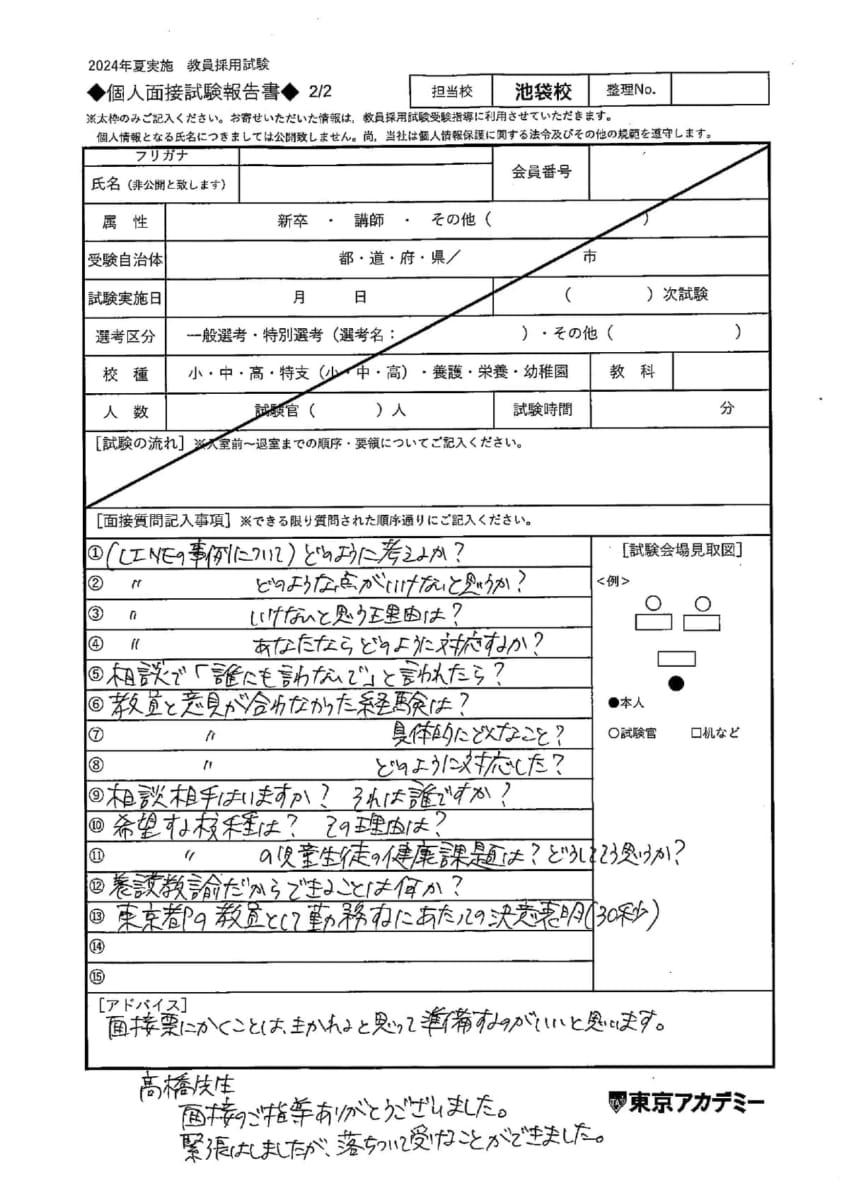 2024年夏実施　教員採用試験
◆個人面接試験報告書◆ 2/2
担当校 池袋校 整理No.
※太枠のみご記入ください。お寄せいただいた情報は，教員採用試験受験指導に利用させていただきます。
個人情報となる氏名につきましては公開致しません。尚，当社は個人情報保護に関する法令及びその他の規範を遵守します。
フリガナ
氏名（非公開と致します） 会員番号
属　性 新卒　・　講師　・　その他（　　　　　　　　）
受験自治体 都・道・府・県／　　　　　　　　市
試験実施日 月　　　日 （　　　　　）次試験
選考区分 一般選考・特別選考（選考名：　　　　　　　　）・その他（　　　　　　　　）
校　種 小・中・高・特支（小・中・高）・養護・栄養・幼稚園 教　科
人　数 試験官（　　　　）人 試験時間 分
［試験の流れ］※入室前～退室までの順序・要領についてご記入ください。
［面接質問記入事項］※できる限り質問された順序通りにご記入ください。
①（LINEの事例について）どのように考えるか？
② 〃 どのような点がいけないと思うか？
③ 〃 いけないと思う理由は？
④ 〃 あなたならどのように対応するか？
⑤ 相談で「誰にも言わないで」と言われたら？
⑥ 教員と意見が合わなかった経験は？
⑦ 〃 具体的にどんなこと？
⑧ 〃 どのように対応した？
⑨ 相談相手はいますか？　それは誰ですか？
⑩ 希望する校種は？　その理由は？
⑪ 〃 の児童生徒の健康課題は？どうしてそう思うか？
⑫ 養護教諭だからできることは何か？
⑬ 東京都の教員として勤務するにあたっての決意表明（30秒）
⑭
⑮
［試験会場見取図］
<例>
●本人
○試験官　　□机など
［アドバイス］
面接票にかくことは、きかれると思って準備するのがいいと思います。
高橋先生
面接のご指導ありがとうございました。
緊張はしましたが、落ちついて受けることができました。
東京アカデミー